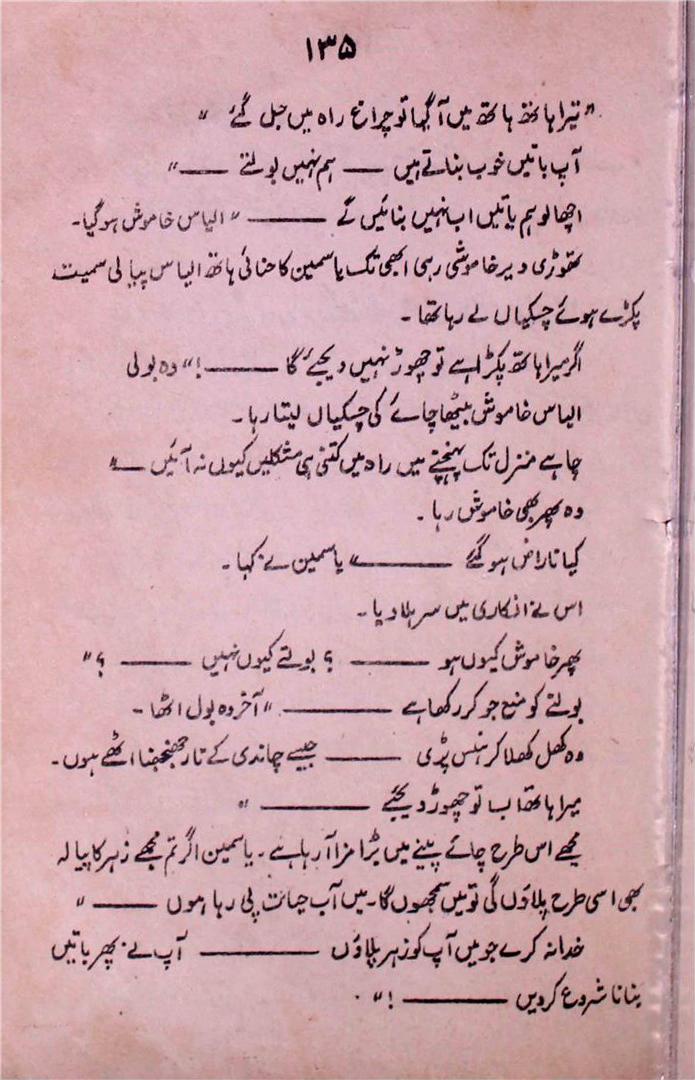 ۱۳۵
"تیرا ہاتھ ہاتھ میں آگیا تو چراغ راہ میں جل گئے "
آپ باتیں خوب بناتے ہیں —— ہم نہیں بولتے ——"
اچھا لو ہم باتیں اب نہیں بنائیں گے ——" الیاس خاموش ہوگیا۔
تھوڑی دیر خاموشی رہی ابھی تک یاسمین کا حنائی ہاتھ الیاس پیالی سمیت
پکڑے ہوئے چسکیاں لے رہا تھا۔
اگر میرا ہاتھ پکڑا ہے تو چھوڑ نہیں دیجئے گا ——!" وہ بولی
الیاس خاموش بیٹھا چائے کی چسکیاں لیتا رہا۔
چاہے منزل تک پہنچنے میں راہ میں کتنی ہی مشکلیں کیوں نہ آئیں —"
وہ پھر بھی خاموش رہا۔
کیا ناراض ہوگئے ——" یاسمین نے کہا۔
اس نے انکاری میں سر ہلا دیا۔
پھر خاموش کیوں ہو —— ؟ بولتے کیوں نہیں —— ؟"
بولنے کو منع جو کر رکھا ہے ——" آخر وہ بول اٹھا۔
وہ کھل کھلا کر ہنس پڑی —— جیسے چاندی کے تار جھنجھنا اٹھے ہوں۔
میرا ہاتھ اب تو چھوڑ دیجئے ——"
مجھے اس طرح چائے پینے میں بڑا مزا آ رہا ہے۔ یاسمین اگر تم مجھے زہر کا پیالہ
بھی اسی طرح پلاؤں گی تو میں سمجھوں گا۔ میں آب حیات پی رہا ہوں ——"
خدا نہ کرے جو میں آپ کو زہر پلاؤں —— آپ نے پھر باتیں
بنانا شروع کر دیں ——!"۔